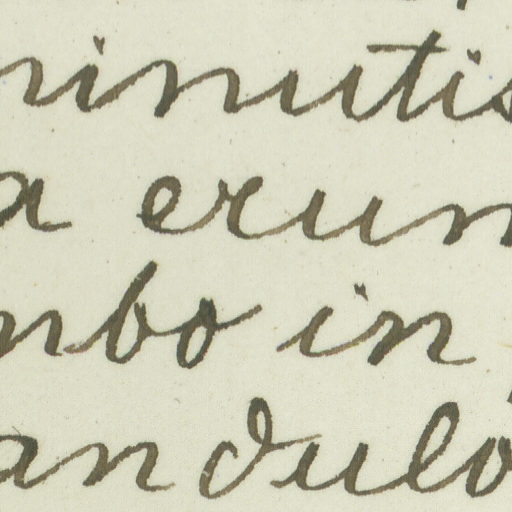 inutis
a erum
mbo in
andulo